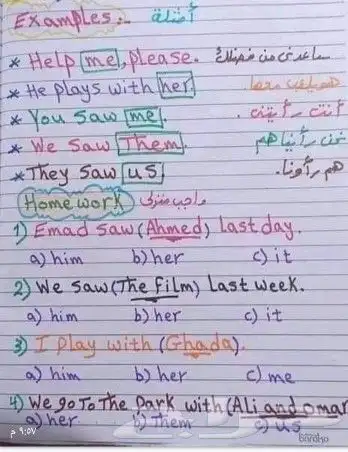 Examples:- أمثلة
* Help me, please. ساعدنى من فضلك
* He plays with her. هو يلعب معها
* You saw me. أنت رأيتنى.
* We saw Them. نحن رأيناهم
* They saw us. هم رأونا.
Homework واجب منزلى
1) Emad saw (Ahmed) last day.
a) him b) her c) it
2) We saw (The film) last week.
a) him b) her c) it
3) I play with (Ghada).
a) him b) her c) me
4) We go To The Park with (Ali and omar
a) her b) Them c) us
٩:٥٧ م